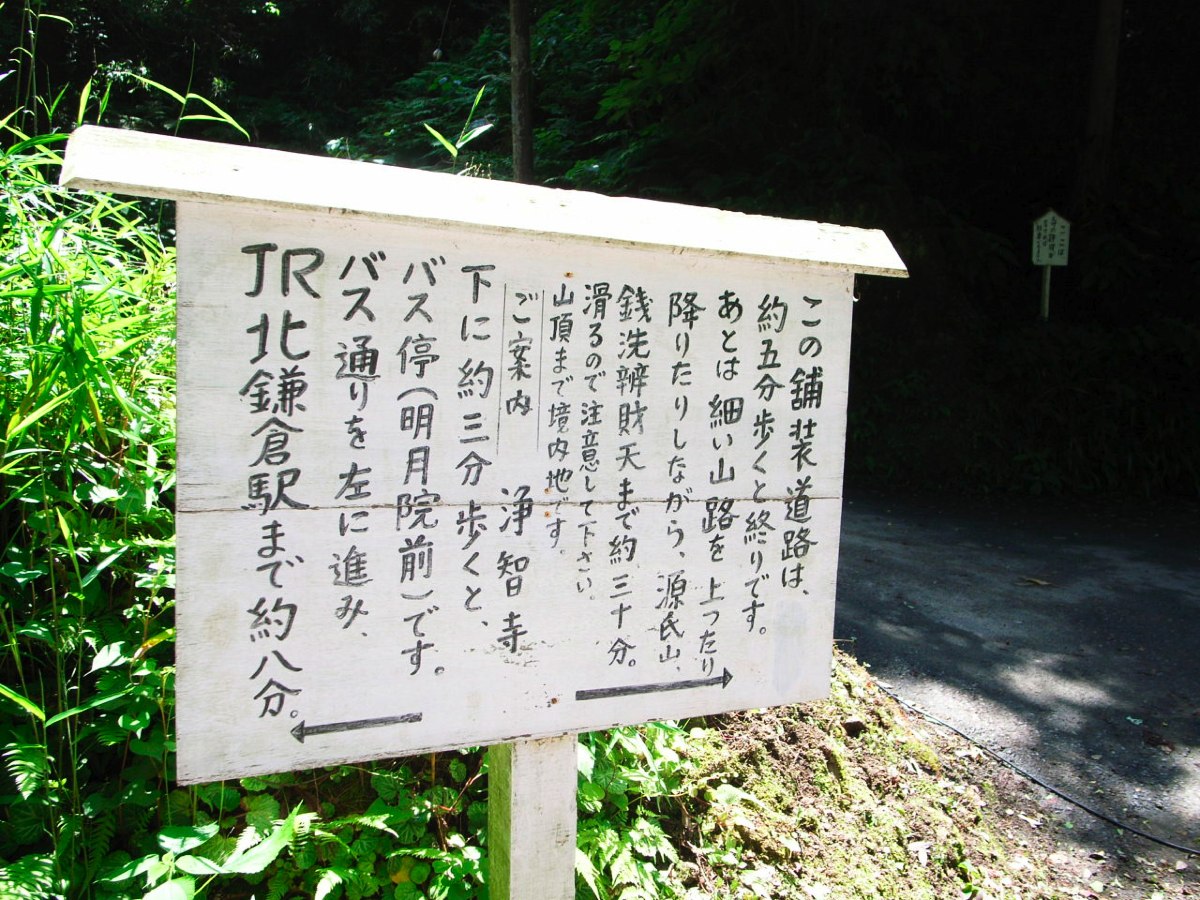 この舗装道路は、
約五分歩くと終りです。
あとは細い山路を上ったり
降りたりしながら、源氏山、
銭洗辨財天まで約三十分。
滑るので注意して下さい。
山頂まで境内地です。
ご案内 浄智寺
下に約三分歩くと、
バス停(明月院前)です。
バス通りを左に進み、
JR北鎌倉駅まで約八分。
ここは